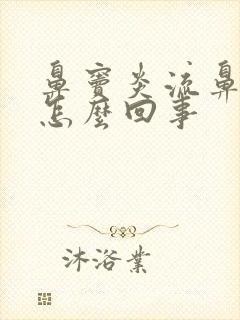 鼻窦炎流鼻
怎麼回事
沐浴業